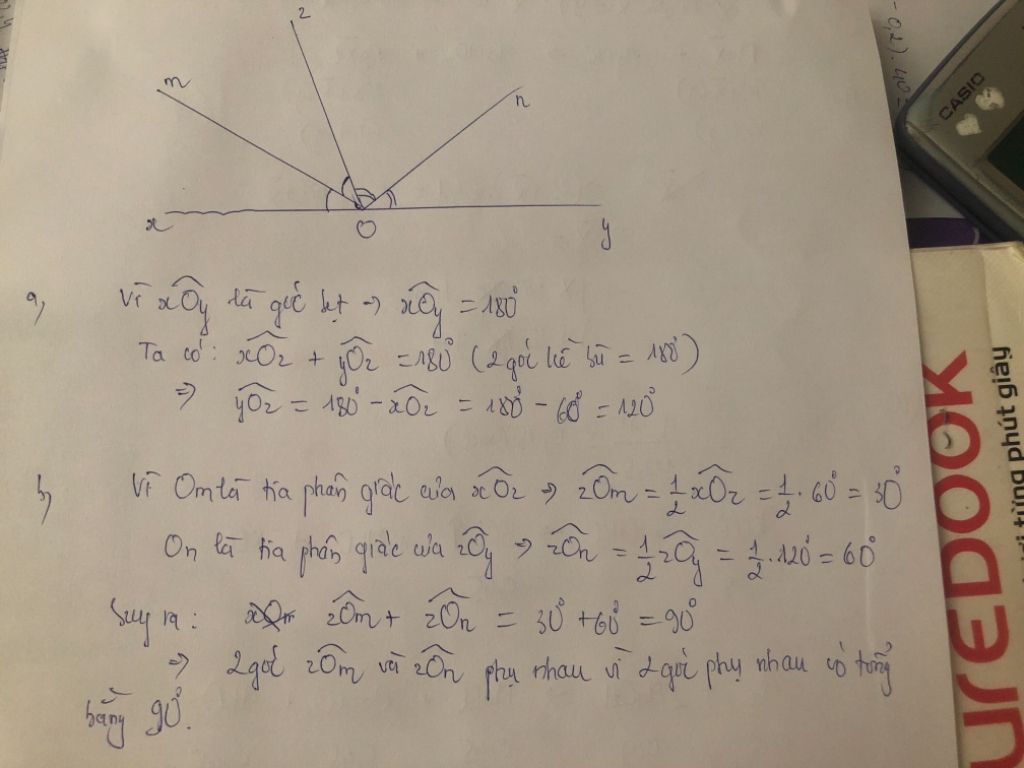 z
m
n
x
O
y
CASIO
-0,2).40
a, Vì xOy là góc bẹt => xOy = 180°
Ta có: xOz + yOz = 180° (2 góc kề bù = 180°)
=> yOz = 180° - xOz = 180° - 60° = 120°
b, Vì Om là tia phân giác của xOz => zOm = 1/2 xOz = 1/2 . 60° = 30°
On là tia phân giác của zOy => zOn = 1/2 zOy = 1/2 . 120° = 60°
Suy ra: zOm + zOn = 30° + 60° = 90°
=> 2 góc zOm và zOn phụ nhau vì 2 góc phụ nhau có tổng
bằng 90°.
ureDOOK
từng phút giây